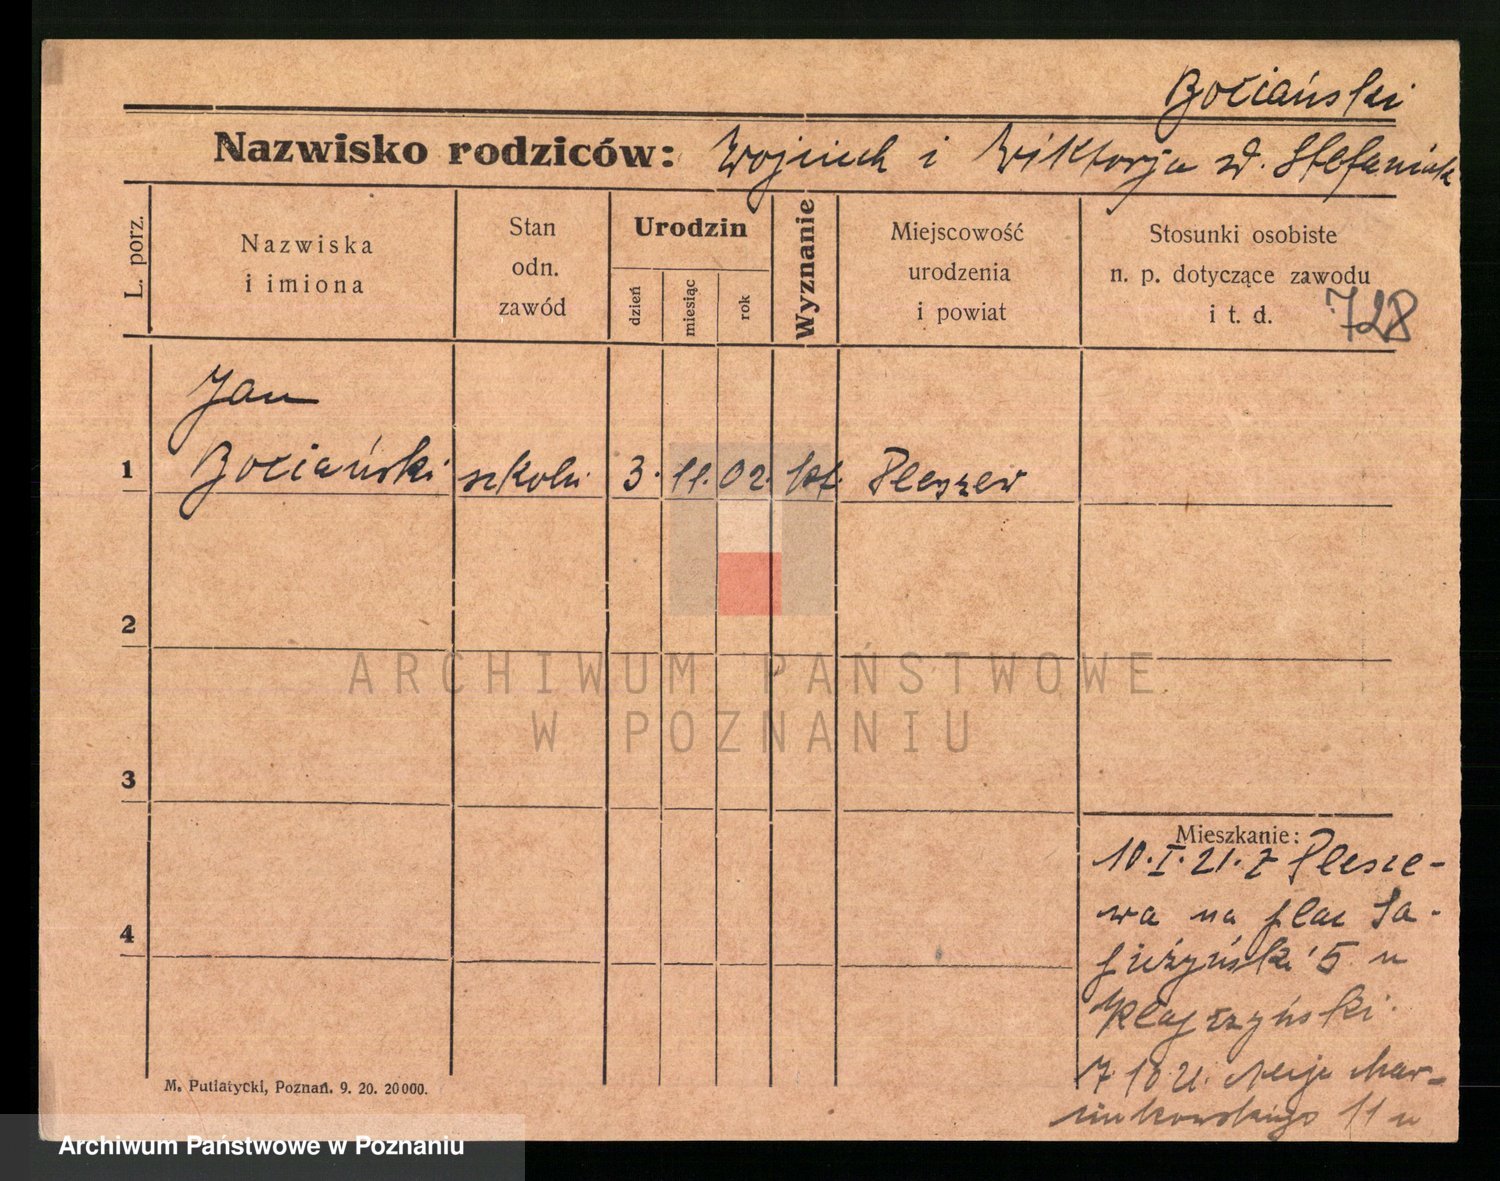 Bociański
Nazwisko rodziców: Wojciech i Wiktorja zd. Stefaniak
L. porz.
Nazwiska
i imiona
Stan
odn.
zawód
Urodzin
dzień
miesiąc
rok
Wyznanie
Miejscowość
urodzenia
i powiat
Stosunki osobiste
n. p. dotyczące zawodu
i t. d.
728
Jan
1 Bociański 3. 11. 02. kat. Pleszew
2
ARCHIWUM PAŃSTWOWE
W POZNANIU
3
Mieszkanie:
10. I. 21. z Plesze-
wa na plac Sa-
pieżyński 5 u
4
7 10 21. Aleje Mar-
cinkowskiego 11 u
M. Putiatycki, Poznań. 9. 20. 20000.
Archiwum Państwowe w Poznaniu